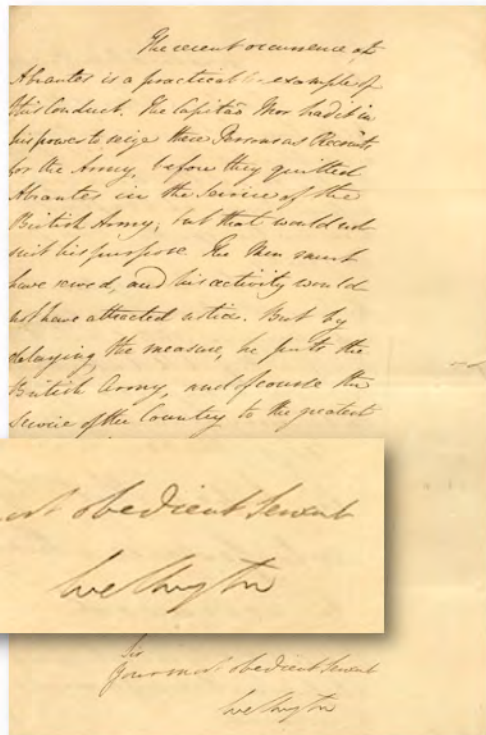 The recent occurrence at
Abrantes is a practical example of
this Conduct. The Capitaõ Mor had it in
his power to seize these Persons as Recruits
for the Army, before they quitted
Abrantes in the Service of the
British Army; but that would not
suit his purpose. The Men must
have served, and his activity would
not have attracted notice. But by
delaying the measure, he puts the
British Army, and of course the
Service of the Country to the greatest
obedient Servant
Wellington
Sir
Your most obedient Servant
Wellington